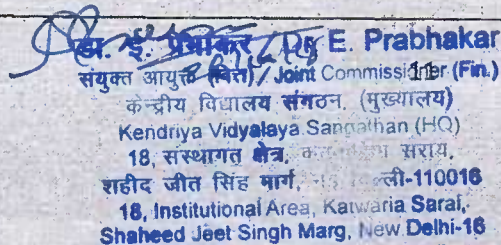 डा. ई. प्रभाकर / Dr E. Prabhakar
संयुक्त आयुक्त (वित्त) / Joint Commissioner (Fin.)
केन्द्रीय विद्यालय संगठन, (मुख्यालय)
Kendriya Vidyalaya Sangathan (HQ)
18, संस्थागत क्षेत्र, सराय,
शहीद जीत सिंह मार्ग, ल्ली-110016
18, Institutional Area, Katwaria Sarai,
Shaheed Jeet Singh Marg, New Delhi-16